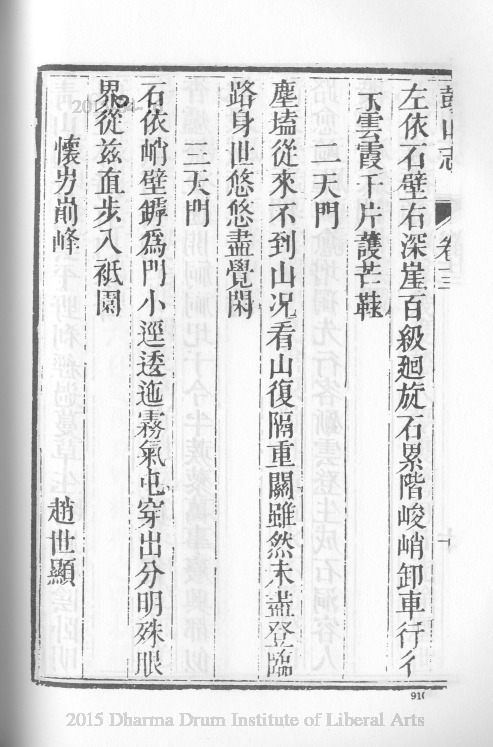 鼓山志 卷十三
左依石壁右深崖百級廻旋石累階峻峭卸車行
下雲霞千片護芒鞋
二天門
塵壒從來不到山况看山復隔重關雖然未盡登臨
路身世悠悠盡覺閑
三天門
石依峭壁罅爲門小逕透迤霧氣屯穿出分明殊眼
界從兹直步入祇園
懷劣崱峰 趙世顯
910
2015 Dharma Drum Institute of Liberal Arts